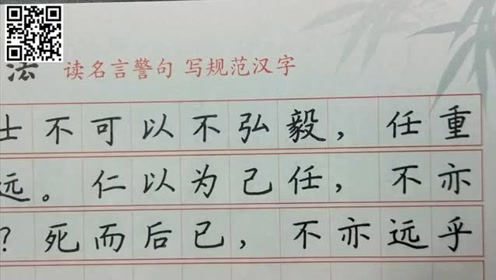 法 读名言警句 写规范汉字
士不可以不弘毅，任重
远。仁以为己任，不亦
？死而后已，不亦远乎